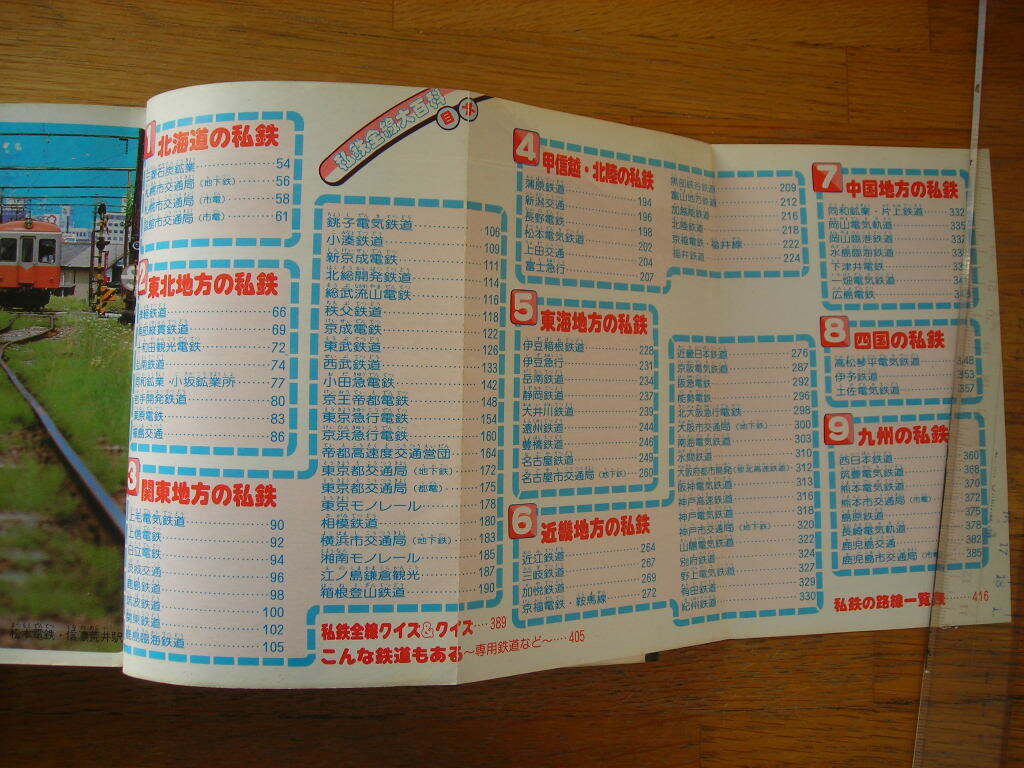 私鉄全線大百科
目次
1 北海道の私鉄
三菱石炭鉱業 54
札幌市交通局(地下鉄) 56
札幌市交通局(市電) 58
函館市交通局(市電) 61
2 東北地方の私鉄
津軽鉄道 66
南部縦貫鉄道 69
十和田観光電鉄 72
弘南鉄道 74
同和鉱業・小坂鉱業所 77
岩手開発鉄道 80
栗原電鉄 83
福島交通 86
3 関東地方の私鉄
上毛電気鉄道 90
上信電鉄 92
日立電鉄 94
茨城交通 96
鹿島鉄道 98
筑波鉄道 100
関東鉄道 102
鹿島臨海鉄道 105
銚子電気鉄道 106
小湊鉄道 109
新京成電鉄 111
北総開発鉄道 114
総武流山電鉄 116
秩父鉄道 118
京成電鉄 122
東武鉄道 126
西武鉄道 133
小田急電鉄 142
京王帝都電鉄 148
東京急行電鉄 154
京浜急行電鉄 160
帝都高速度交通営団 164
東京都交通局(地下鉄) 172
東京都交通局(都電) 175
東京モノレール 178
相模鉄道 180
横浜市交通局(地下鉄) 183
湘南モノレール 185
江ノ島鎌倉観光 187
箱根登山鉄道 190
私鉄全線クイズ&クイズ 389
こんな鉄道もある~専用鉄道など~ 405
4 甲信越・北陸の私鉄
蒲原鉄道 194
新潟交通 196
長野電鉄 198
松本電気鉄道 202
上田交通 204
富士急行 207
黒部峡谷鉄道 209
富山地方鉄道 212
加越能鉄道 216
北陸鉄道 218
京福電鉄・福井線 222
福井鉄道 224
5 東海地方の私鉄
伊豆箱根鉄道 228
伊豆急行 231
岳南鉄道 234
静岡鉄道 237
大井川鉄道 239
遠州鉄道 244
豊橋鉄道 246
名古屋鉄道 249
名古屋市交通局(地下鉄) 260
6 近畿地方の私鉄
近江鉄道 264
三岐鉄道 267
加悦鉄道 269
京福電鉄・鞍馬線 272
近畿日本鉄道 276
京阪電気鉄道 287
阪急電鉄 292
能勢電鉄 296
北大阪急行電鉄 298
大阪市交通局(地下鉄) 300
南海電気鉄道 303
水間鉄道 310
大阪府都市開発(泉北高速鉄道) 312
阪神電気鉄道 313
神戸高速鉄道 316
神戸電気鉄道 318
神戸市交通局(地下鉄) 320
山陽電気鉄道 322
別府鉄道 324
野上電気鉄道 327
有田鉄道 329
紀州鉄道 330
7 中国地方の私鉄
同和鉱業・片上鉄道 332
岡山電気軌道 335
岡山臨港鉄道
水島臨海鉄道
下津井電鉄
一畑電気鉄道
広島電鉄
8 四国の私鉄
高松琴平電気鉄道 348
伊予鉄道 353
土佐電気鉄道 357
9 九州の私鉄
西日本鉄道 360
筑豊電気鉄道 368
熊本電気鉄道 370
熊本市交通局(市電) 372
島原鉄道 375
長崎電気軌道 378
鹿児島交通 382
鹿児島市交通局(市電) 385
私鉄の路線一覧表 416
松本電鉄・信濃荒井駅